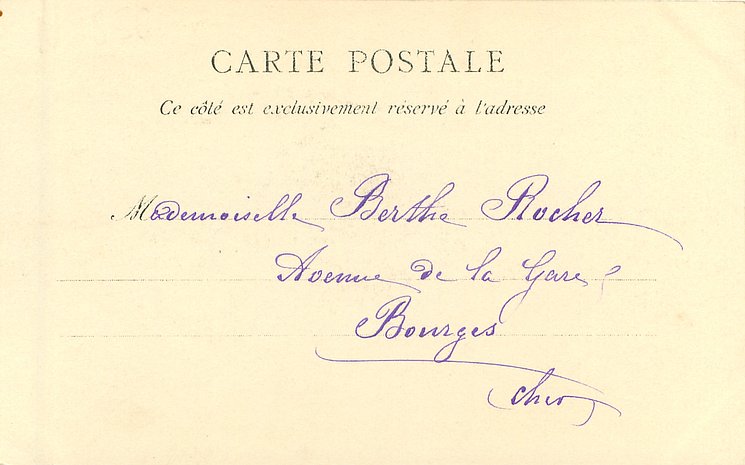 CARTE POSTALE
Ce côté est exclusivement réservé à l'adresse
Mademoiselle Berthe Rocher
Avenue de la Gare
Bourges
Cher